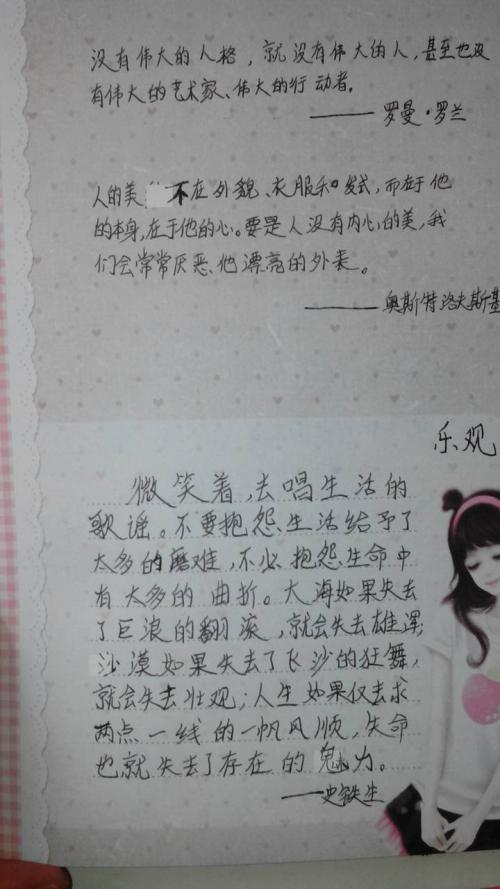 没有伟大的人格，就没有伟大的人，甚至也没
有伟大的艺术家、伟大的行动者。
——罗曼·罗兰
人的美不在外貌、衣服和发式，而在于他
的本身，在于他的心。要是人没有内心的美，我
们会常常厌恶他漂亮的外表。
——奥斯特洛夫斯基
乐观
微笑着，去唱生活的
歌谣。不要抱怨生活给予了
太多的磨难，不必抱怨生命中
有太多的曲折。大海如果失去
了巨浪的翻滚，就会失去雄浑；
沙漠如果失去了飞沙的狂舞，
就会失去壮观；人生如果仅去求
两点一线的一帆风顺，失命
也就失去了存在的魅力。
——史铁生